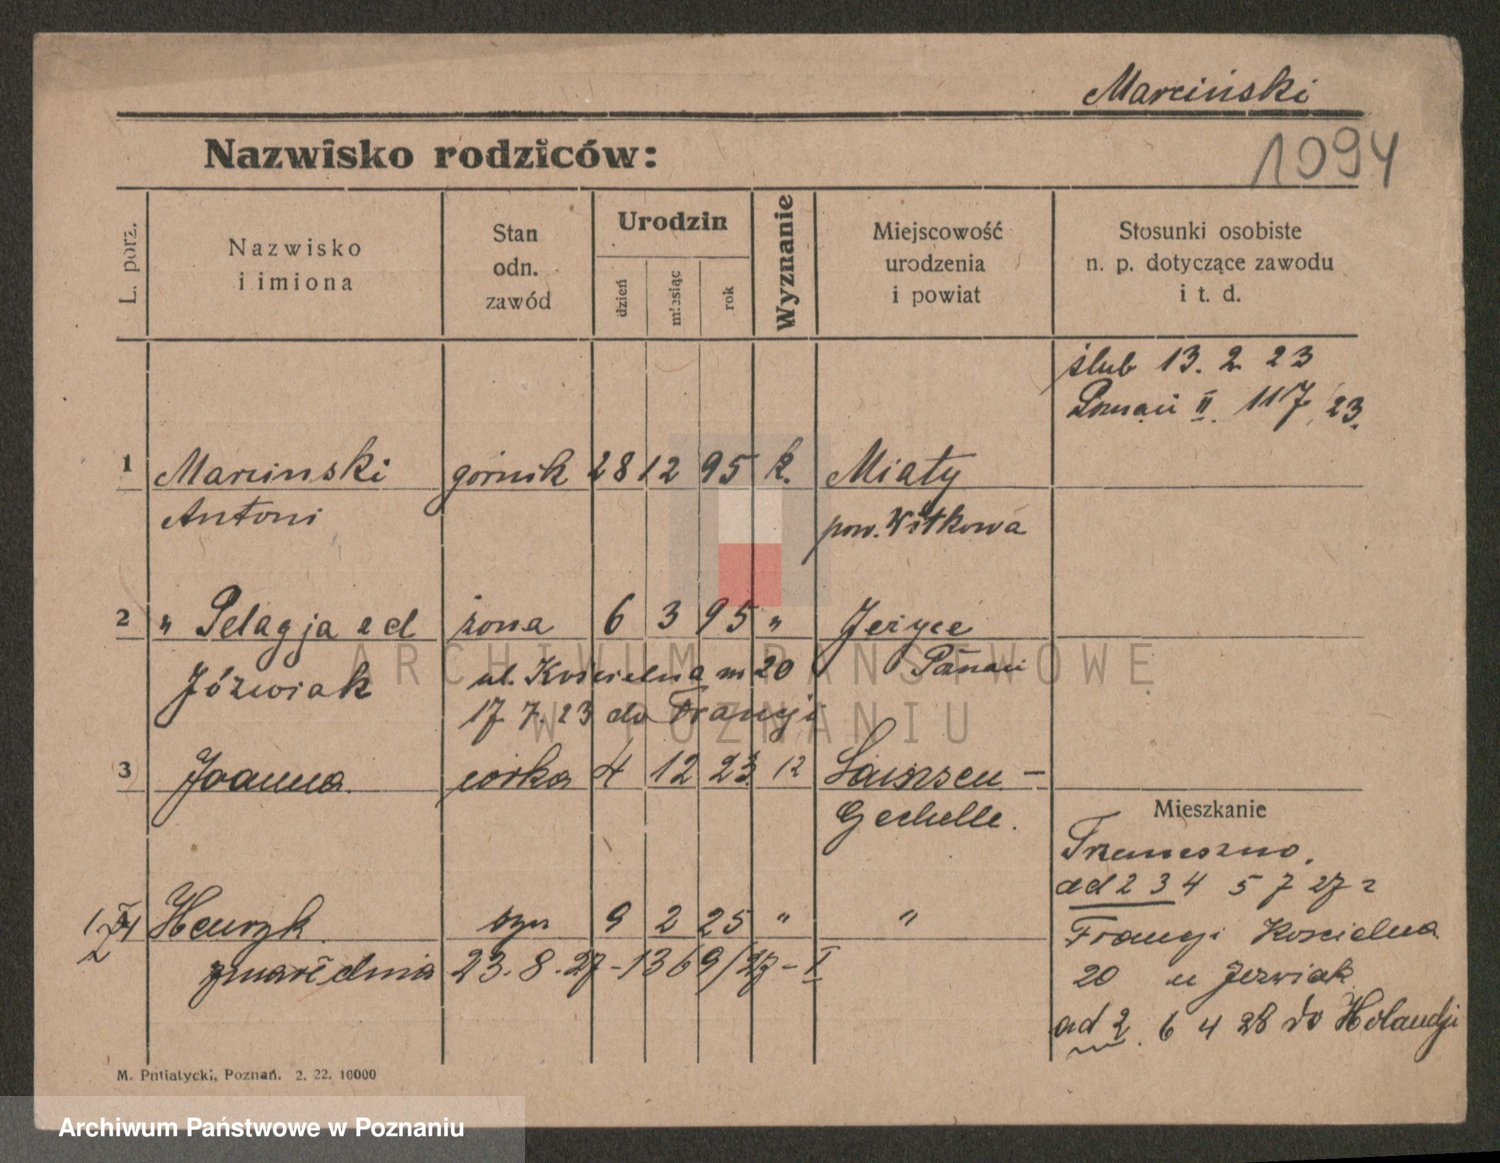 Marciński
1094
Nazwisko rodziców:
L. porz.
Nazwisko
i imiona
Stan
odn.
zawód
Urodzin
dzień
miesiąc
rok
Wyznanie
Miejscowość
urodzenia
i powiat
Stosunki osobiste
n. p. dotyczące zawodu
i t. d.
ślub 13. 2 23
Poznań II. 117/23.
1 Marcinski górnik 28 12 95 k. Miaty
Antoni pow. Witkowa
2 " Pelagja zd żona 6 3 95 " Jeżyce
Jóźwiak ul. Kościelna m 20 Poznań
17 7. 23 do Francji
3 Joanna córka 4 12 23
Gechelle.
Mieszkanie
Trzemeszno.
ad 2 3 4 5 7 27 z
Henryk syn 9 2 25 " "
Francji Koscielna
zmarł dnia 23. 8. 27 - 1369/27 - I
20 u Jezwiak
ad 2. 6 4 28 do Holandji
M. Putiatycki, Poznań. 2. 22. 10000
ARCHIWUM PAŃSTWOWE
W POZNANIU
Archiwum Państwowe w Poznaniu